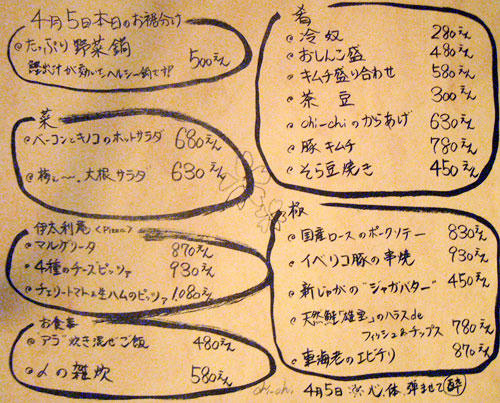 4月5日本日のお福分け
@たっぷり野菜鍋
500えん
菜
@ベーコンとキノコのホットサラダ 680えん
@梅じゃこ大根サラダ 630えん
伊太利庵<Pizza>
@マルゲリータ 870えん
@4種のチーズピッツァ 930えん
@チェリートマトと生ハムのピッツァ 1,080えん
お食事
@アラ炊き混ぜご飯 480えん
@〆の雑炊 580えん
肴
@冷奴 280えん
@おしんこ盛 480えん
@キムチ盛り合わせ 580えん
@茶豆 300えん
@chi-chiのからあげ 630えん
@豚キムチ 780えん
@そら豆焼き 450えん
極
@国産ロースのポークソテー 830えん
@イベリコ豚の串焼 930えん
@新じゃがの"ジャガバター" 450えん
@天然鮭「雄宝」のハラスde
フィッシュ&チップス 780えん
@車海老のエビチリ 870えん
chi-chi
4月5日 心、体、弾ませて 酔